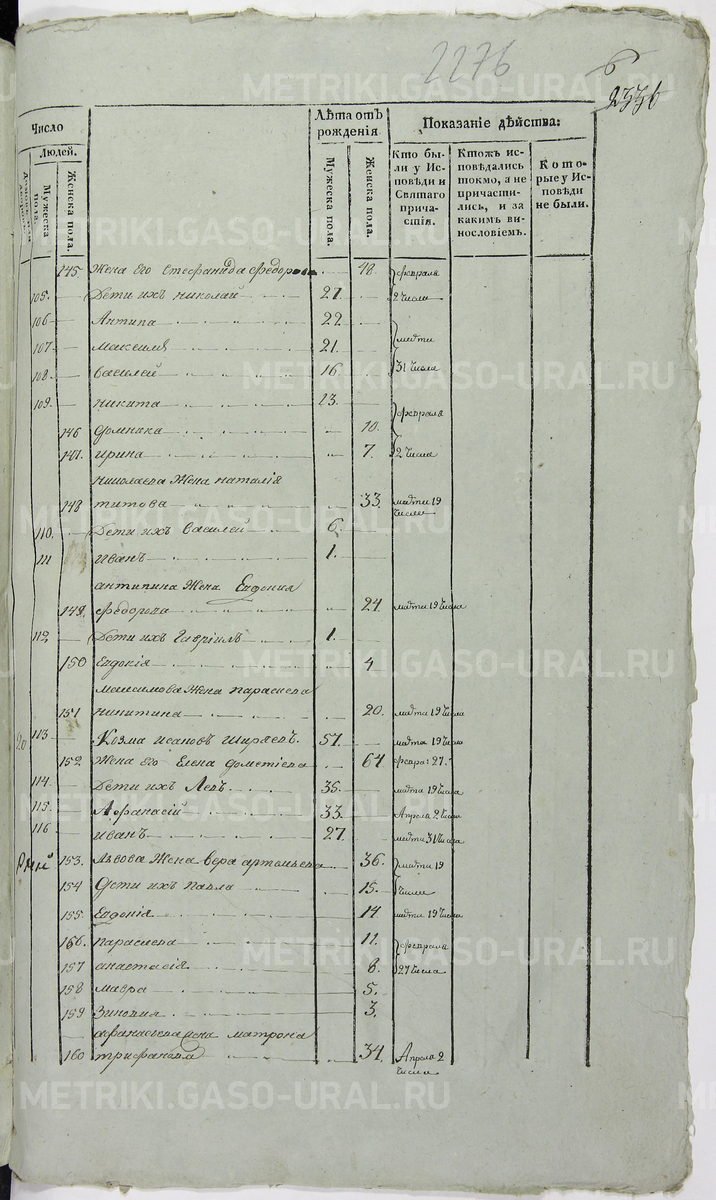 2276
233б
Число
Людей.
Мужеска пола.
Женска пола.
Лѣта отъ рождения
Мужеска пола.
Женска пола.
Показаніе дѣйства:
Кто бы-
ли у Ис-
повѣди и
Святаго
прича-
стія.
Ктожъ ис-
повѣдались
токмо, а не
причасти-
лись, и за
какимъ ви-
нословіемъ.
Кото-
рые у Ис-
повѣди
не были.
145. Жена Его Стефанида Федорова 48. февраля
105. Дети ихъ Николай 27. 2 Числа
106 Антипа 22.
107 Максимъ 21. марта
108. Василей 16. 31 Числа
109. Никита 13. февраля
146 Домника 10.
147. Ирина 7. 2 Числа
Николаева Жена Наталія
148 Титова 33. марта 19 Числа
110. Дети ихъ Василей 6.
111 Иванъ 1.
Антипина Жена Евдокия
149. Федорова 24. марта 19 Числа
112. Дети ихъ Гавріилъ 1.
150 Евдокія 4
Максимова Жена Параскева
151 Никитина 20. марта 19 Числа
20 113 Козма Исаковъ Ширяевъ. 57. марта 19 Числа
152 Жена Его Елена Дометіева 64 февра: 27.
114 Дети ихъ Левъ. 35. марта 19 Числа
115. Афанасій 33. Апреля 2 Числа
116 Иванъ 27. марта 31 Числа
153. Львова Жена Вера Артемьева 36. марта 19
154 Дети ихъ Павла 15. Числа
155. Евдокія 14 марта 19 Числа
156. Параскева 11. февраля
157 Анастасія 8. 27 Числа
158 Мавра 5.
159 Зиновия 3.
Афанасьева Жена Матрона
160 Трифанова 34. Апреля 2
Числа
METRIKI.GASO-URAL.RU